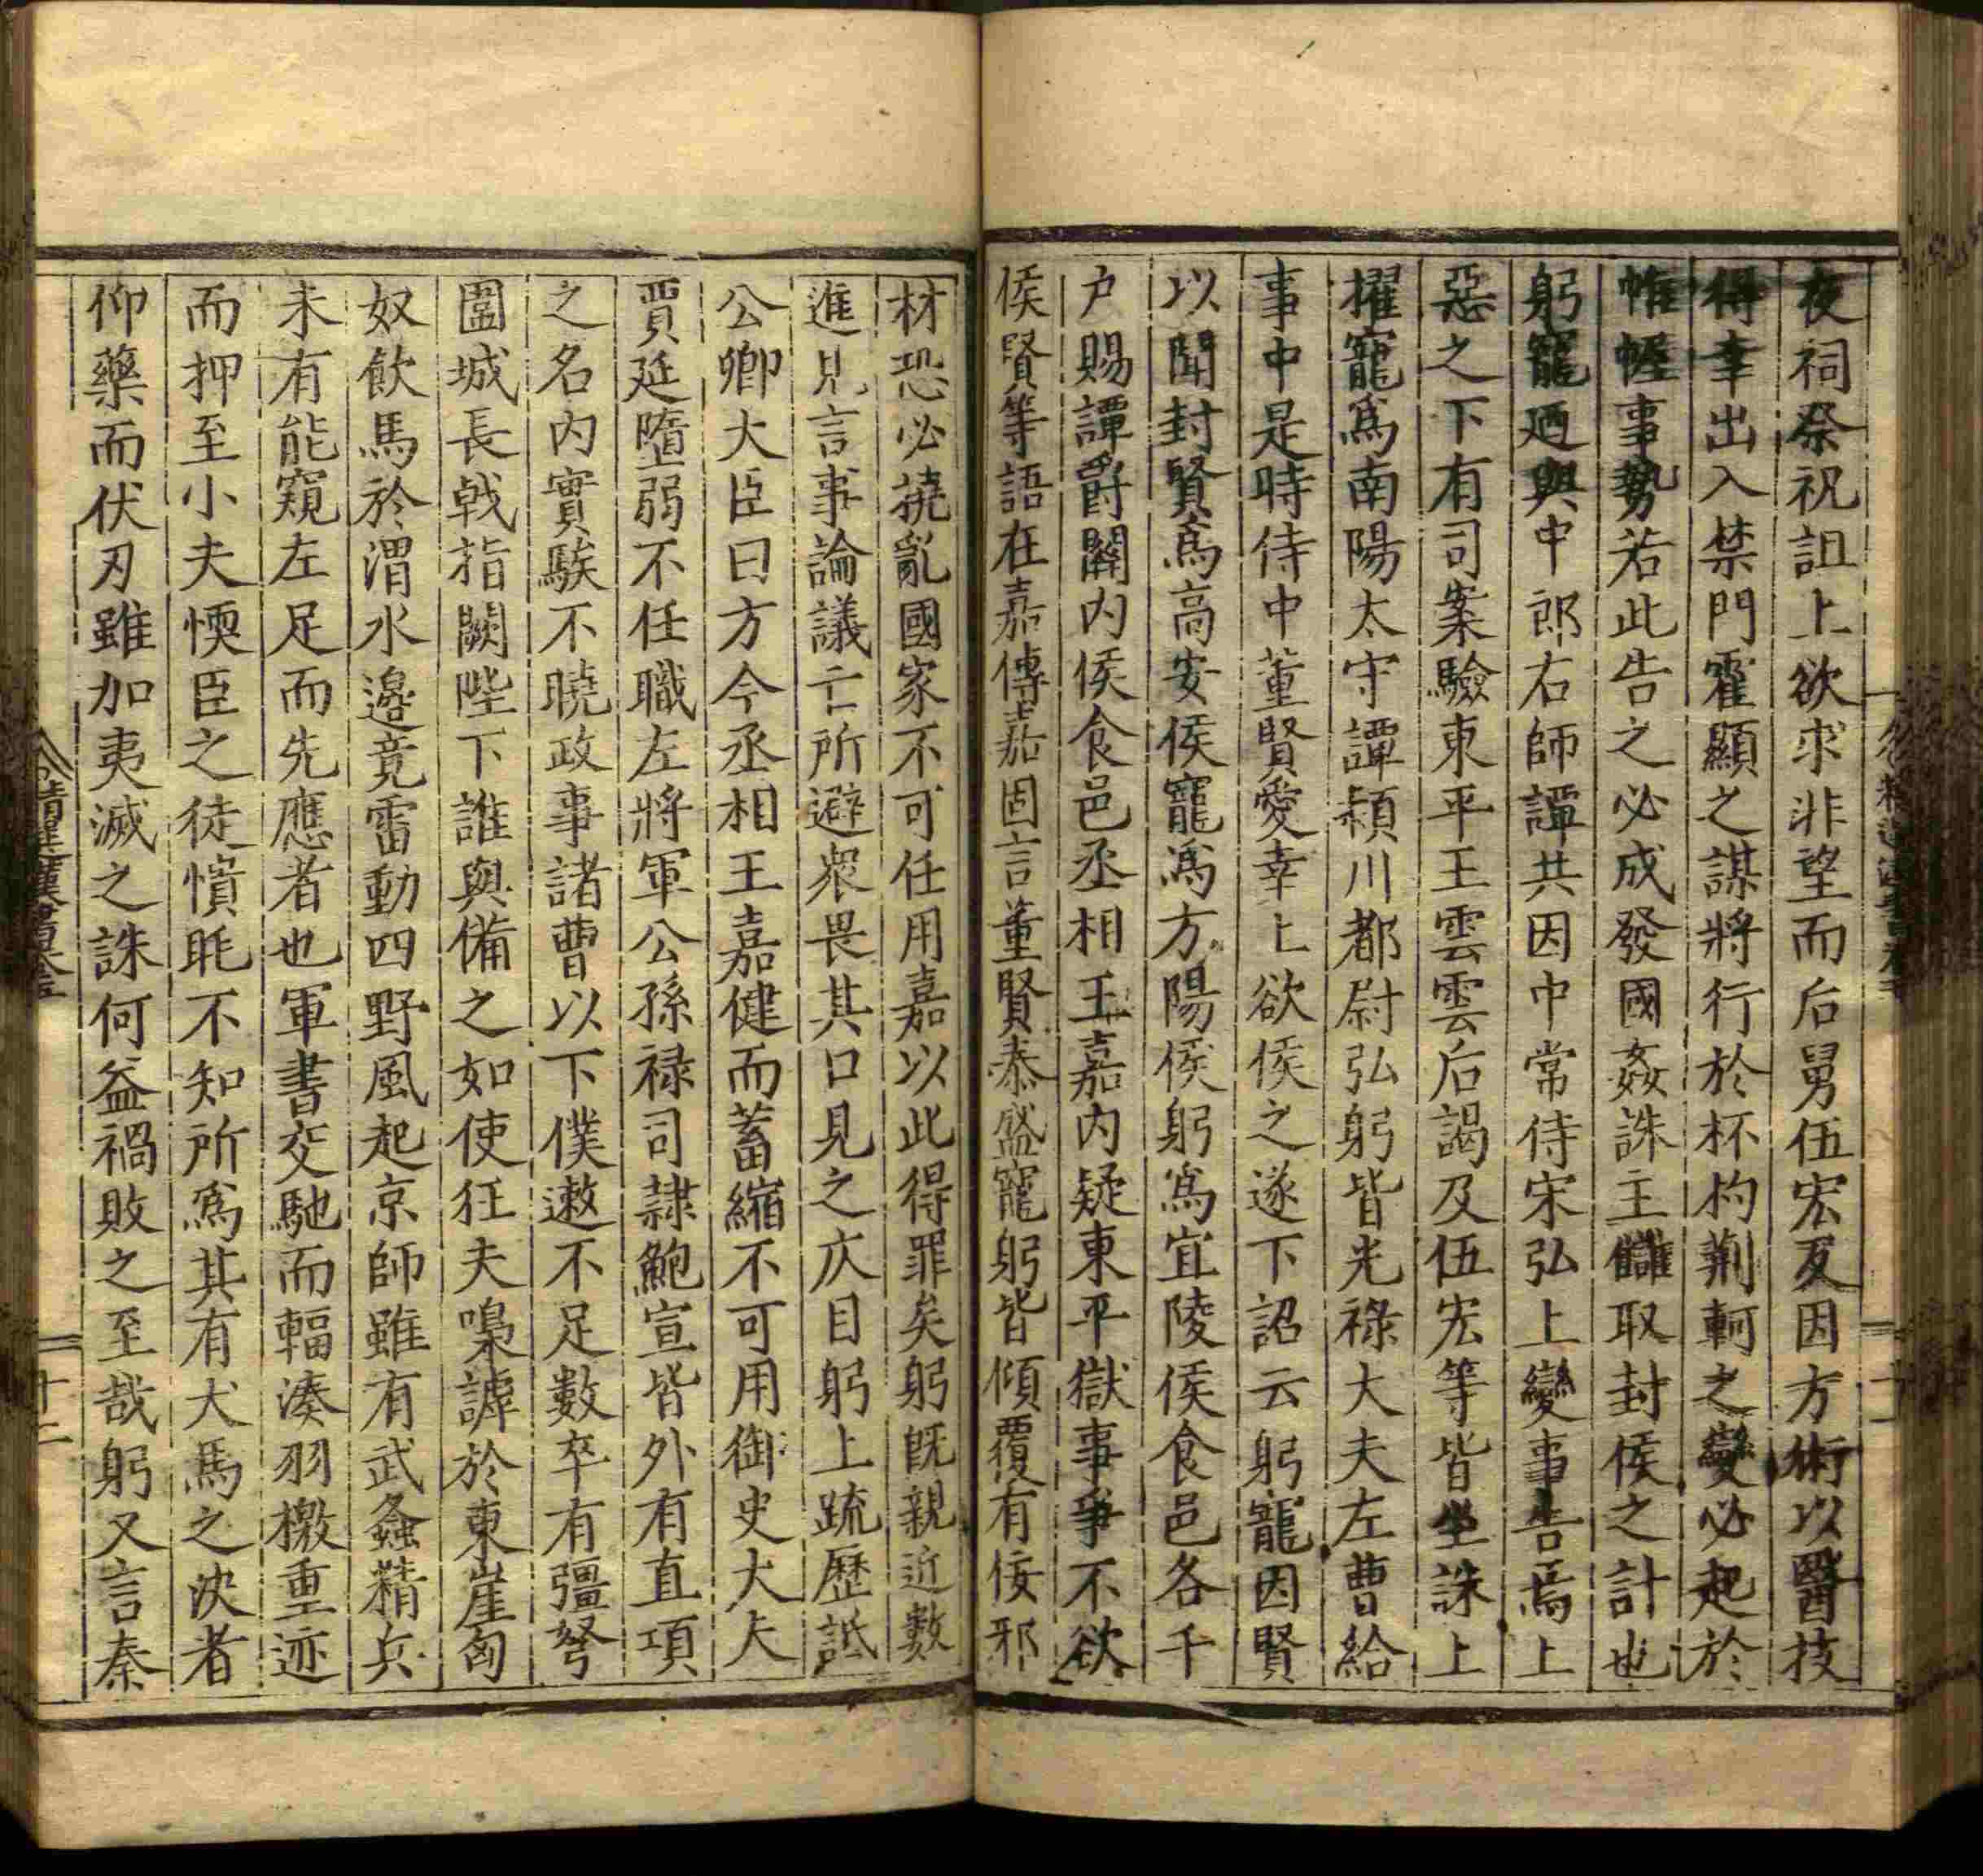 夜祠祭祝詛上欲求非望而后舅伍宏反因方術以醫技
得幸出入禁門霍顯之謀將行於杯杓荆軻之變必起於
帷幄事勢若此告之必成發國姦誅主讎取封侯之計也
躬寵迺與中郎右師譚共因中常侍宋弘上變事告焉上
惡之下有司案驗東平王雲雲后謁及伍宏等皆坐誅上
擢寵爲南陽太守譚潁川都尉弘躬皆光祿大夫左曹給
事中是時侍中董賢愛幸上欲侯之遂下詔云躬寵因賢
以聞封賢爲高安侯寵爲方陽侯躬爲宜陵侯食邑各千
户賜譚爵關内侯食邑丞相王嘉内疑東平獄事爭不欲
侯賢等語在嘉傳嘉固言董賢泰盛寵躬皆傾覆有佞邪
材恐必撓亂國家不可任用嘉以此得罪矣躬旣親近數
進見言事論議亡所避衆畏其口見之仄目躬上疏歷詆
公卿大臣曰方今丞相王嘉健而蓄縮不可用御史大夫
賈延墮弱不任職左將軍公孫禄司隷鮑宣皆外有直項
之名内實騃不曉政事諸曹以下僕遬不足數卒有彊弩
圍城長戟指闕陛下誰與備之如使狂夫嘄謼於東崖匈
奴飲馬於渭水邉竟雷動四野風起京師雖有武蠭精兵
未有能窺左足而先應者也軍書交馳而輻湊羽檄重迹
而押至小夫愞臣之徒憒眊不知所爲其有犬馬之決者
仰藥而伏刃雖加夷滅之誅何益禍敗之至哉躬又言秦
十二